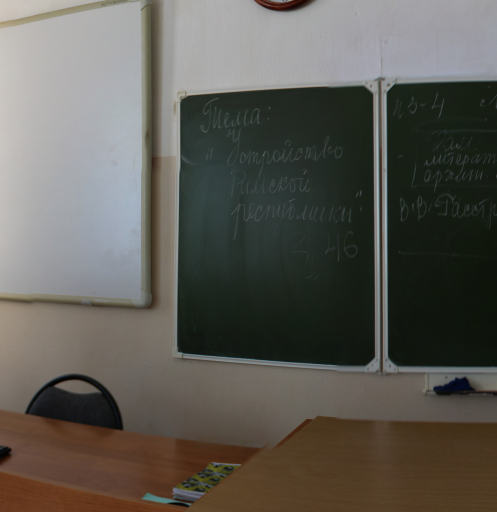 Тема:
" Устройство
Римской
республики"
§ 46
3-4
литерат
В.В. Расстр